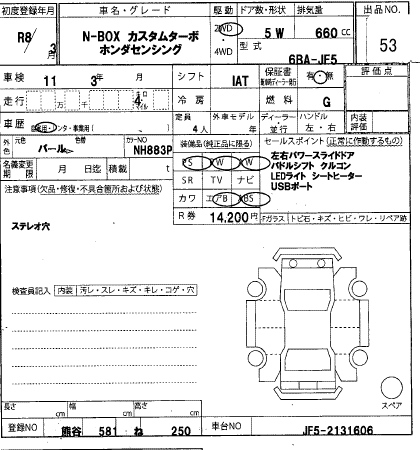 初度登録年月 車名・グレード 駆動 ドア数・形状 排気量 出品NO
R8/3 N-BOX カスタムターボ 2WD 5W 660cc 53
ホンダセンシング 4WD 型式 6BA-JF5
車検 11年 3月 シフト IAT 保証書 有・無 評価点
走行 万 千 4 キロ マイル 冷房 燃料 G
車歴 自家用・レンタ・事業用( ) 定員 4人 外車モデル 年 ディーラー・並行 ハンドル 左・右 内装評価
外色 パール カラーNO NH883P 装備品(純正品に限る) セールスポイント(正常に作動するもの)
名義変更期限 月 日迄 積載 t PS PW AW 左右パワースライドドア
注意事項(欠品・修復・不具合箇所および状態) SR TV ナビ パドルシフト クルコン
LEDライト シートヒーター
カワ エアB ABS USBポート
ステレオ穴 R券 14,200円 Fガラス トビ石・キズ・ヒビ・ワレ・リペア跡
検査員記入 内装 汚レ・スレ・キズ・キレ・コゲ・穴
長さ cm 幅 cm 高さ cm スペア
登録NO 熊谷 581 ね 250 車台NO JF5-2131606